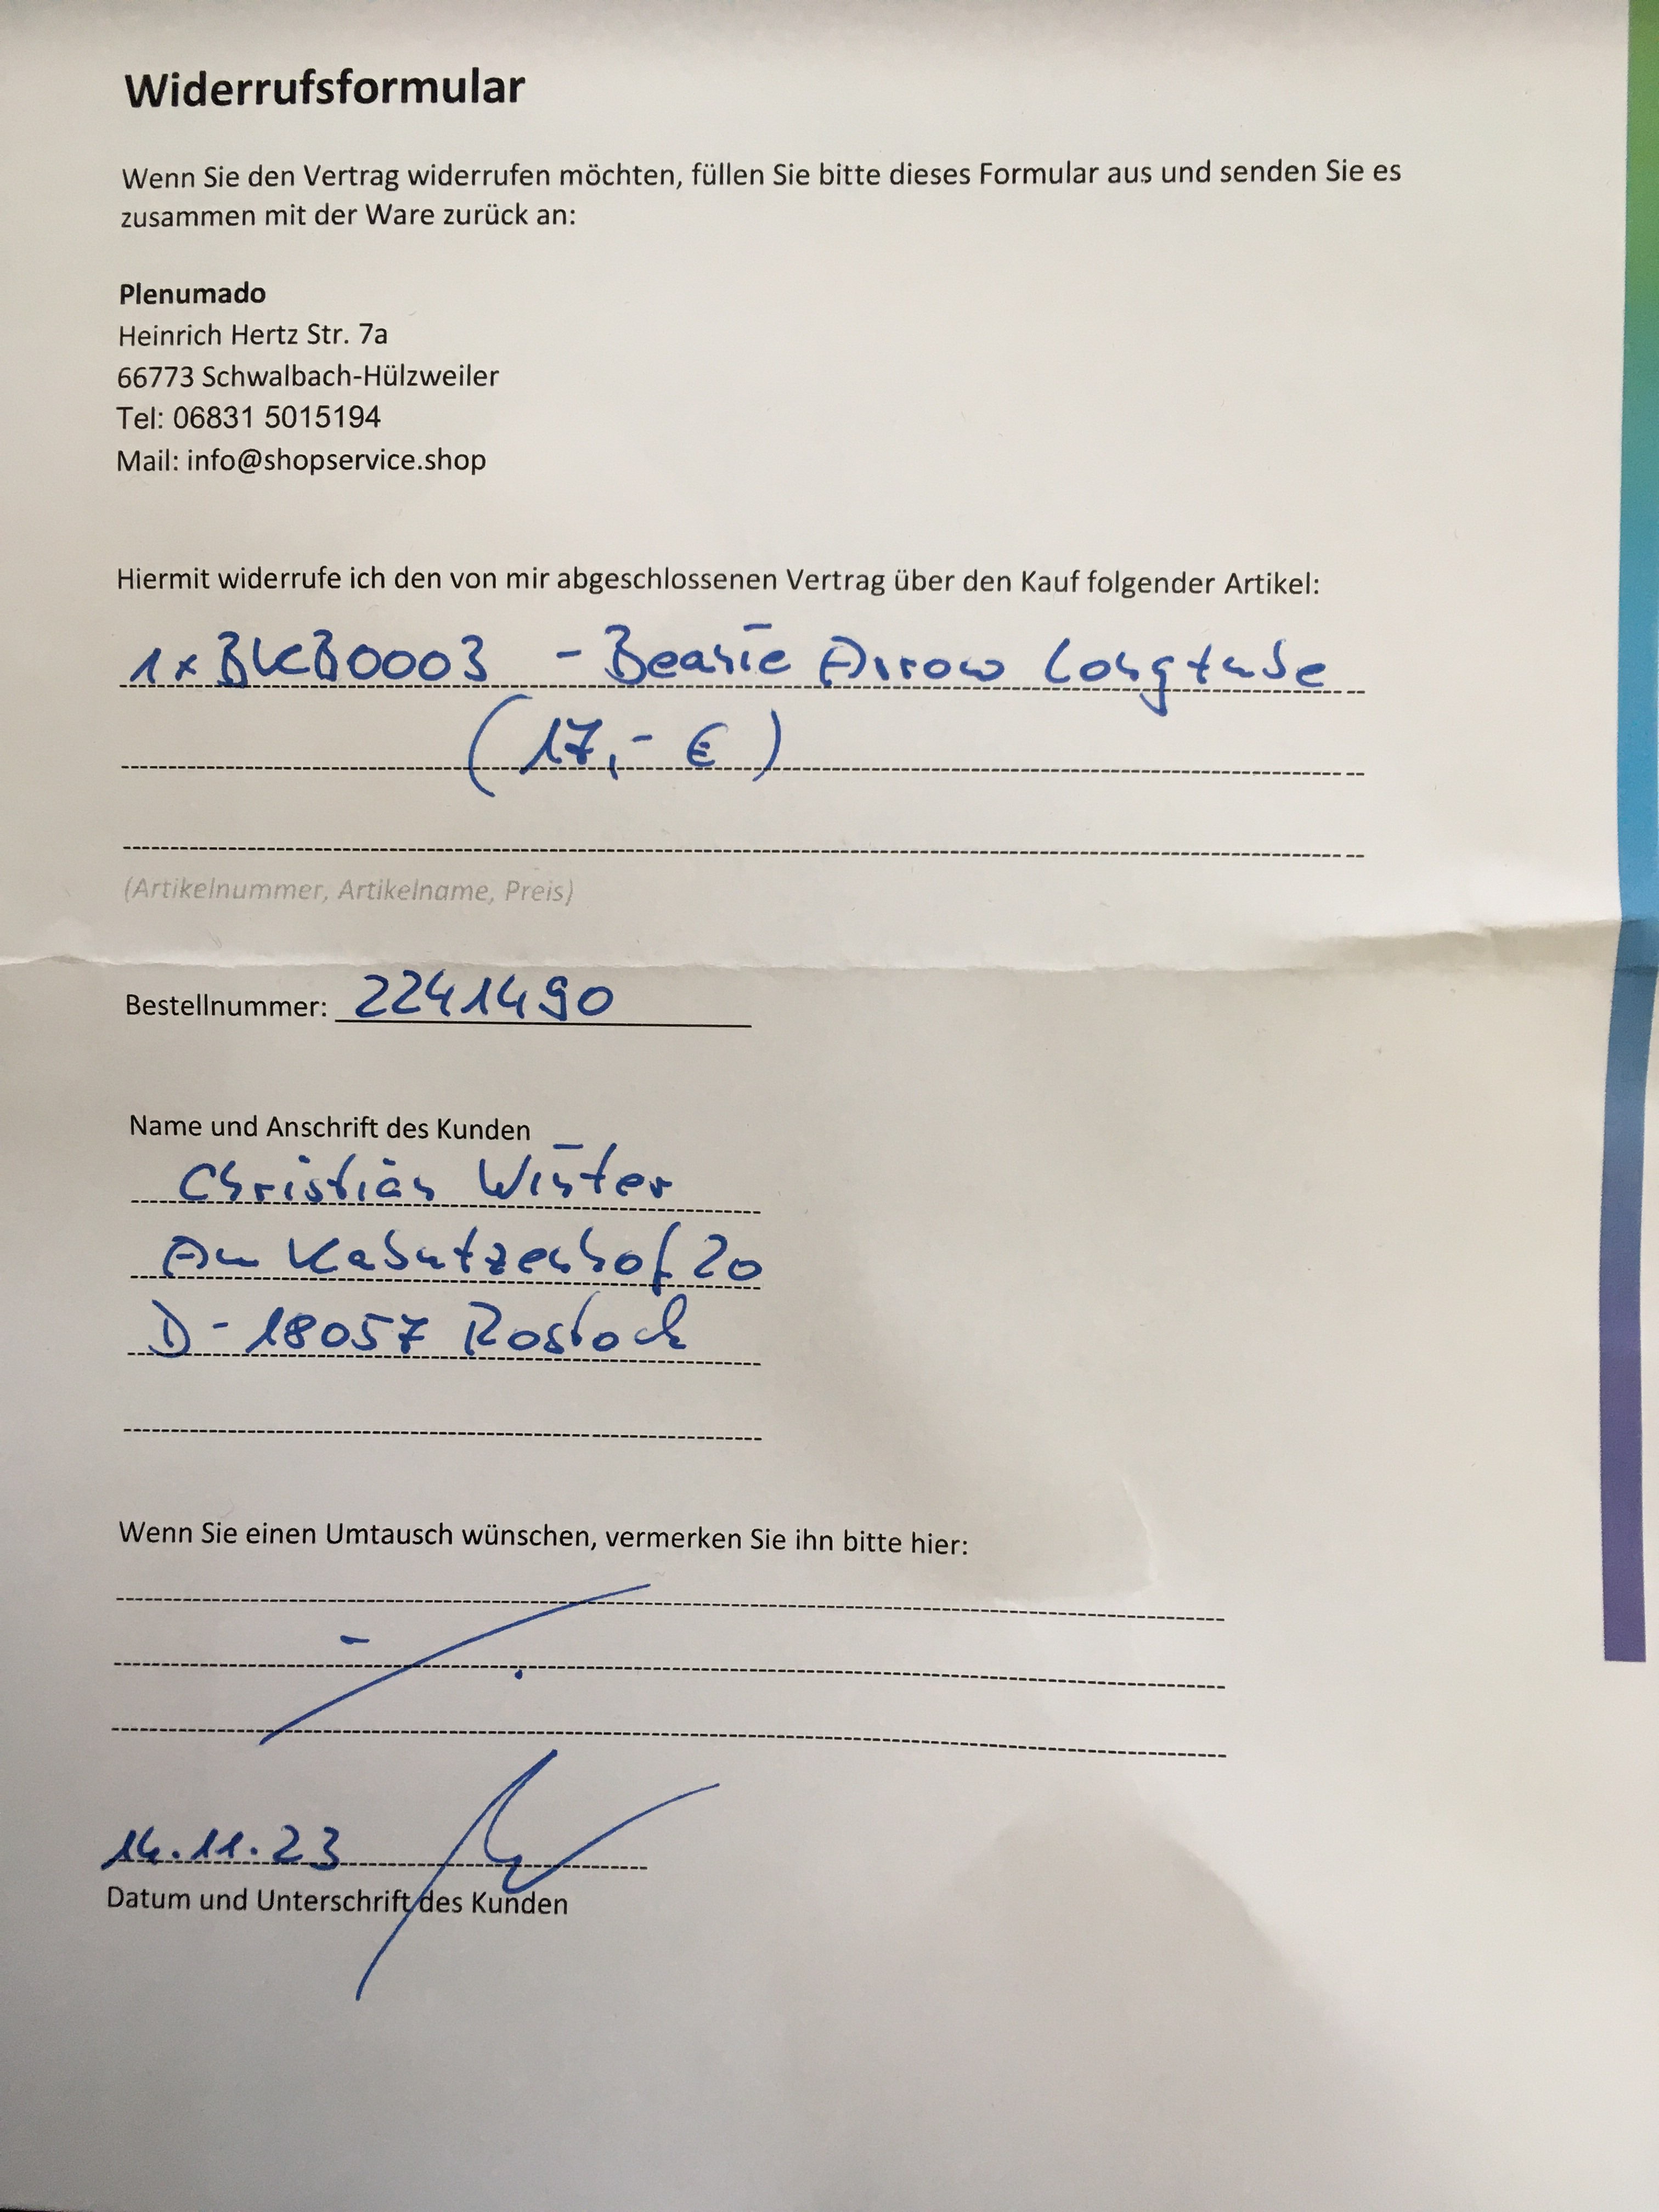 Widerrufsformular
Wenn Sie den Vertrag widerrufen möchten, füllen Sie bitte dieses Formular aus und senden Sie es
zusammen mit der Ware zurück an:
Plenumado
Heinrich Hertz Str. 7a
66773 Schwalbach-Hülzweiler
Tel: 06831 5015194
Mail: info@shopservice.shop
Hiermit widerrufe ich den von mir abgeschlossenen Vertrag über den Kauf folgender Artikel:
1x BKB0003 - Beanie Arrow Longtube
(17,- €)
(Artikelnummer, Artikelname, Preis)
Bestellnummer: 2241490
Name und Anschrift des Kunden
Christian Winter
Am Kabutzenhof 20
D-18057 Rostock
Wenn Sie einen Umtausch wünschen, vermerken Sie ihn bitte hier:
14.11.23
Datum und Unterschrift des Kunden